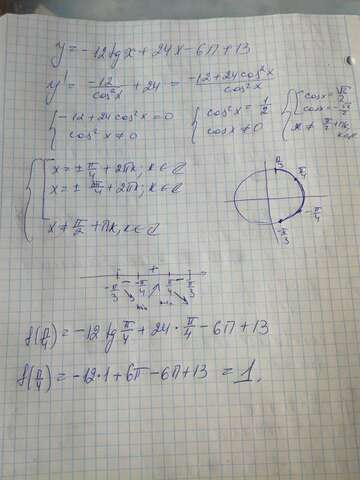 y = -12 tg x + 24x - 6π + 13
y' = -12/cos²x + 24 = (-12 + 24cos²x)/cos²x
{ -12 + 24cos²x = 0
cos²x ≠ 0
{ cos²x = 1/2
cos x ≠ 0
{ cos x = √2/2
cos x = -√2/2
x ≠ π/2 + πk,
k∈Z
{ [ x = ± π/4 + 2πk, k∈Z
x = ± 3π/4 + 2πk, k∈Z
x ≠ π/2 + πk, k∈Z
π/3
π/4
-π/4
-π/3
- + -
-π/3 -π/4 π/4 π/3
min max
f(π/4) = -12 tg π/4 + 24 · π/4 - 6π + 13
f(π/4) = -12·1 + 6π - 6π + 13 = 1.